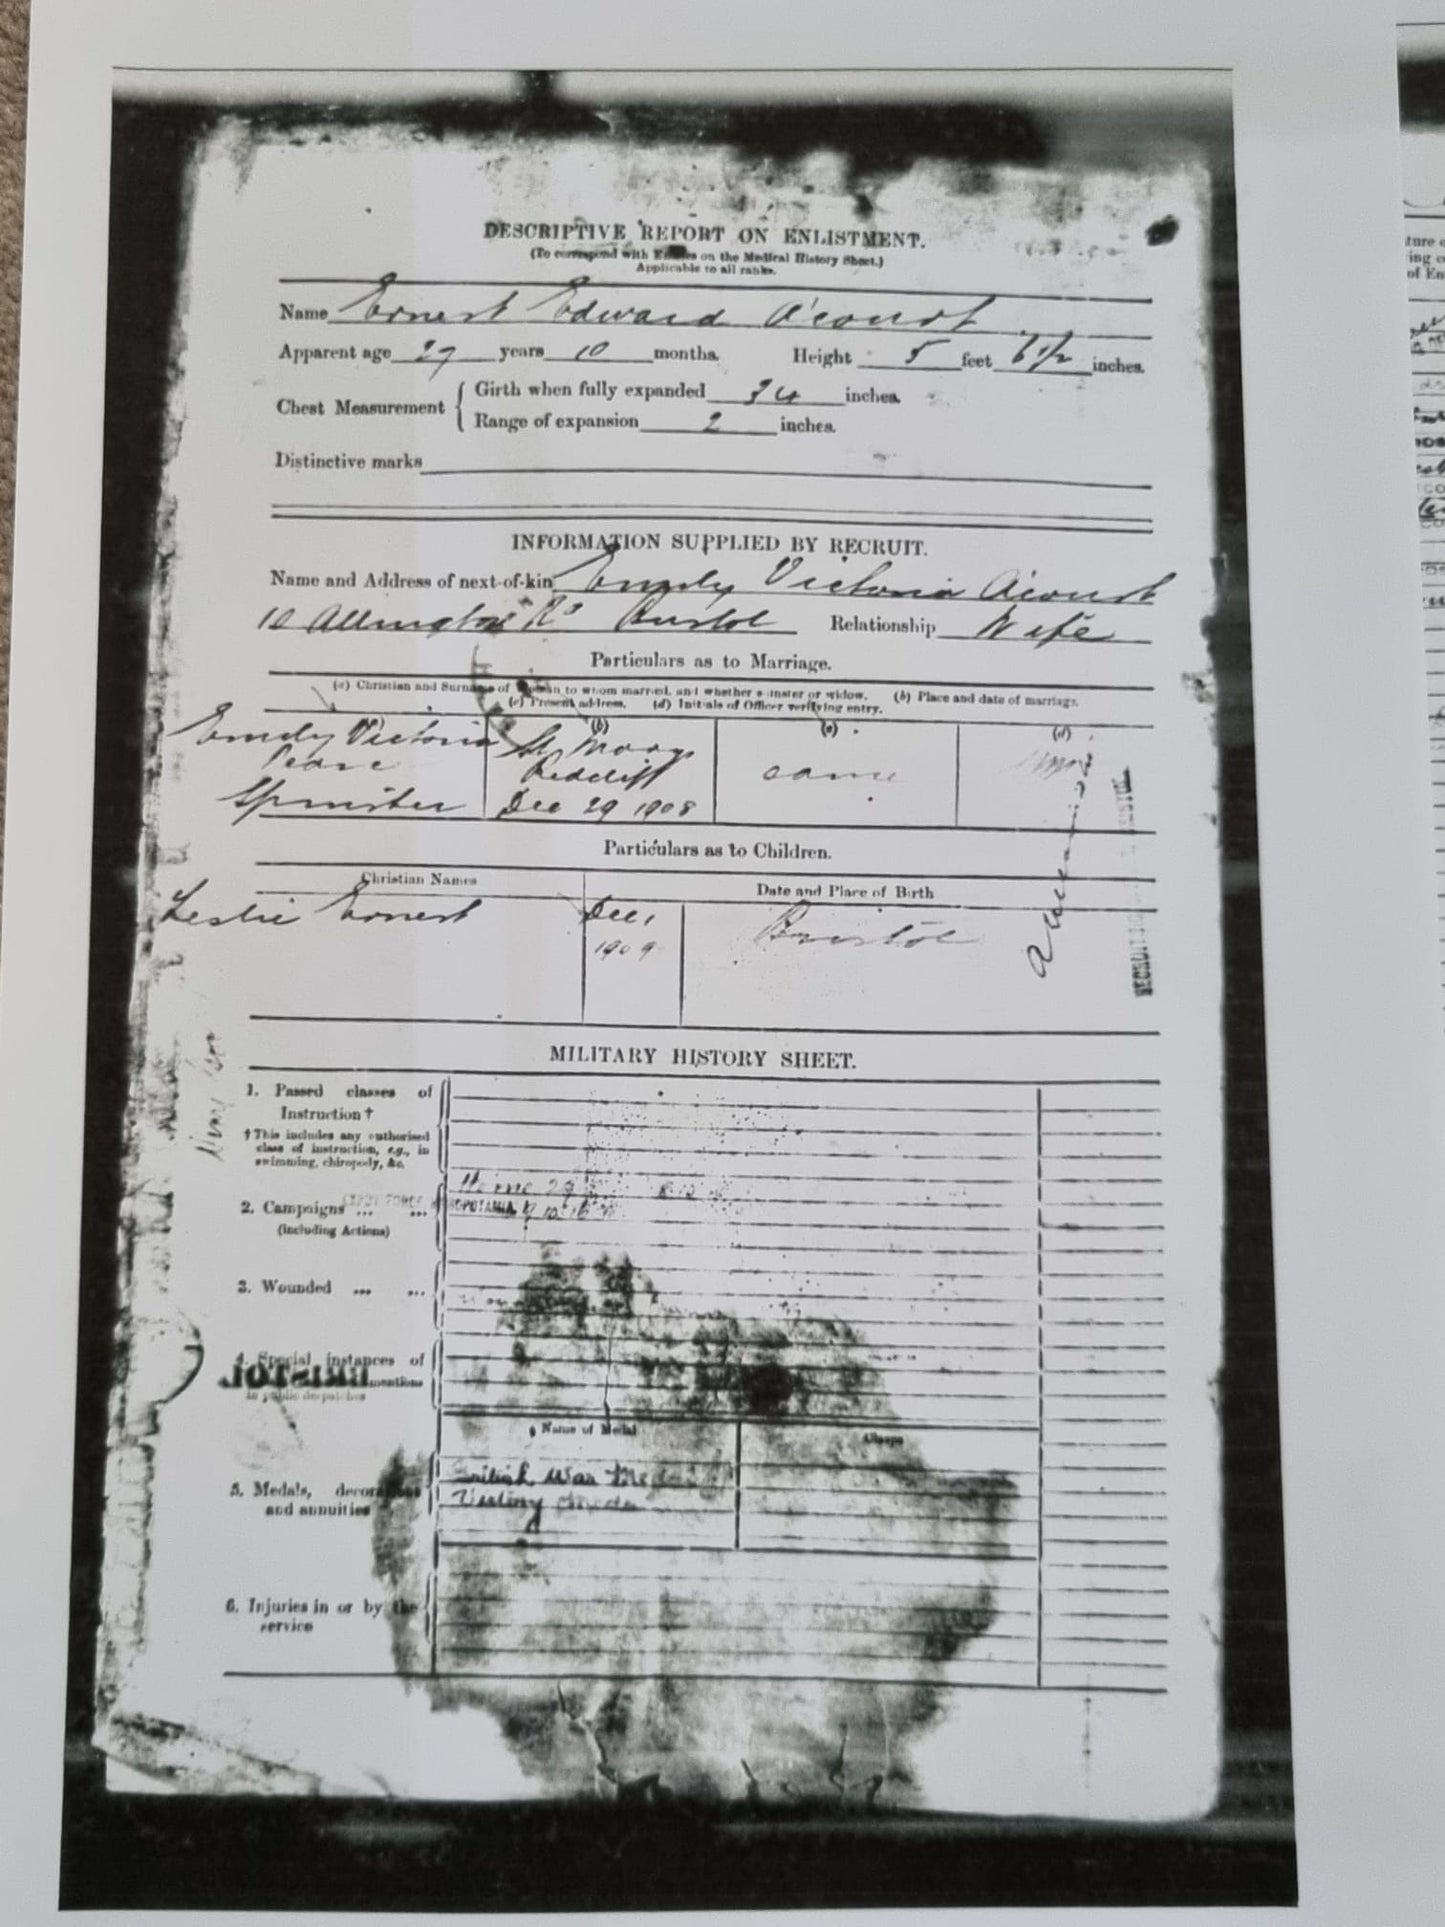 DESCRIPTIVE REPORT ON ENLISTMENT.
(To correspond with Entries on the Medical History Sheet.)
Applicable to all ranks.
Name Ernest Edward A'court
Apparent age 29 years 10 months. Height 5 feet 6 1/2 inches.
Chest Measurement { Girth when fully expanded 34 inches.
Range of expansion 2 inches.
Distinctive marks
INFORMATION SUPPLIED BY RECRUIT.
Name and Address of next-of-kin Emily Victoria A'court
Allington Rd Bristol Relationship Wife
Particulars as to Marriage.
(a) Christian and Surname of Woman to whom married, and whether spinster or widow. (b) Place and date of marriage.
(c) Present address. (d) Initials of Officer verifying entry.
(b) (c) (d)
Emily Victoria St Marys
Redcliff same
Spinster Dec 29 1908
Particulars as to Children.
Christian Names Date and Place of Birth
Leslie Ernest Dec, Bristol
1909
MILITARY HISTORY SHEET.
1. Passed classes of
Instruction †
† This includes any authorised
class of instruction, e.g., in
swimming, chiropody, &c.
Home 29
2. Campaigns ... ... 9 10 16
(including Actions)
3. Wounded ... ...
4. Special instances of
BRISTOL mentions
in public despatches
Name of Medal Clasps
British War
5. Medals, decorations Victory
and annuities
6. Injuries in or by the
service